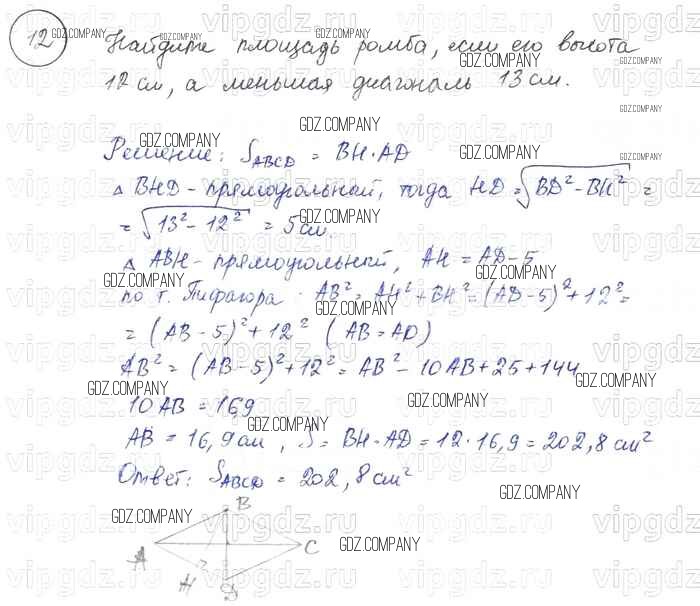 12 Найдите площадь ромба, если его высота
12 см, а меньшая диагональ 13 см.
Решение: S_ABCD = BH·AD
△ BHD - прямоугольный, тогда HD = √(BD² - BH²) =
= √(13² - 12²) = 5 см.
△ ABH - прямоугольный, AH = AD - 5
по т. Пифагора: AB² = AH² + BH² = (AD - 5)² + 12² =
= (AB - 5)² + 12² (AB = AD)
AB² = (AB - 5)² + 12² = AB² - 10AB + 25 + 144
10 AB = 169
AB = 16,9 см, S = BH·AD = 12·16,9 = 202,8 см²
Ответ: S_ABCD = 202,8 см²
B
A
C
H
D
GDZ.COMPANY
vipgdz.ru